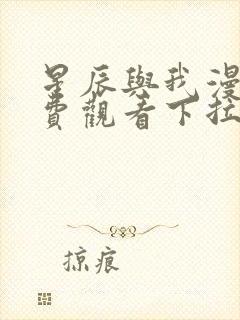 星辰與我漫
費觀看下拉
掠痕